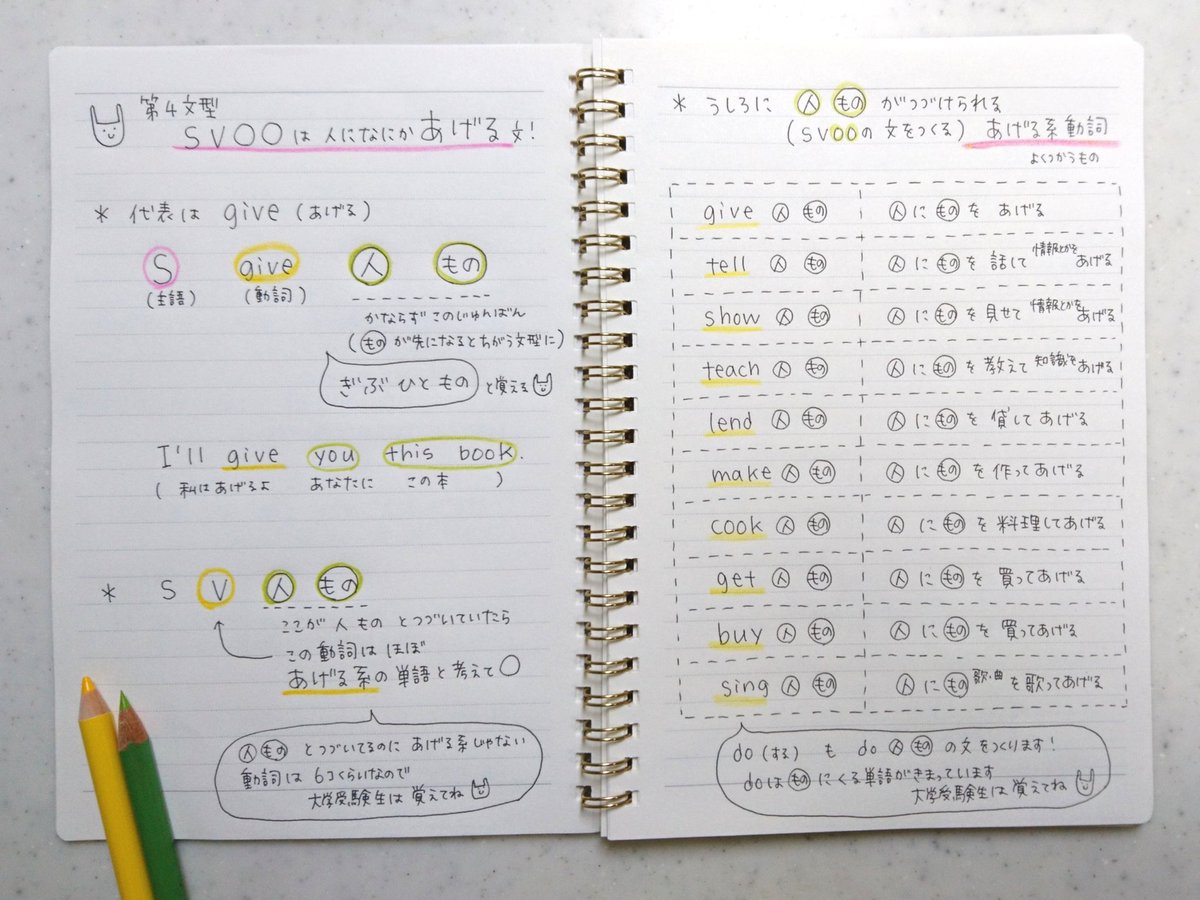 第4文型
SVOOは人になにかあげる文!
* 代表は give (あげる)
S give 人 もの
(主語) (動詞)
かならずこのじゅんばん
(ものが先になるとちがう文型に)
ぎぶ ひと もの と覚える
I'll give you this book.
( 私はあげるよ あなたに この本 )
* S V 人 もの
ここが 人 もの とつづいていたら
この動詞は ほぼ
あげる系の単語と考えて〇
人 もの とつづいてるのに あげる系じゃない
動詞は 6コくらいなので
大学受験生は 覚えてね
* うしろに 人 もの がつづけられる
(SVOOの文をつくる) あげる系動詞
よくつかうもの
give 人 もの 人にものを あげる
tell 人 もの 人にものを 話して 情報とかを あげる
show 人 もの 人にものを 見せて 情報とかを あげる
teach 人 もの 人にものを 教えて 知識を あげる
lend 人 もの 人にものを 貸してあげる
make 人 もの 人にものを 作ってあげる
cook 人 もの 人にものを 料理してあげる
get 人 もの 人にものを 買ってあげる
buy 人 もの 人にものを 買ってあげる
sing 人 もの 人にもの 歌・曲 を歌ってあげる
do (する) も do 人 もの の文をつくります!
doは ものにくる単語がきまっています
大学受験生は 覚えてね